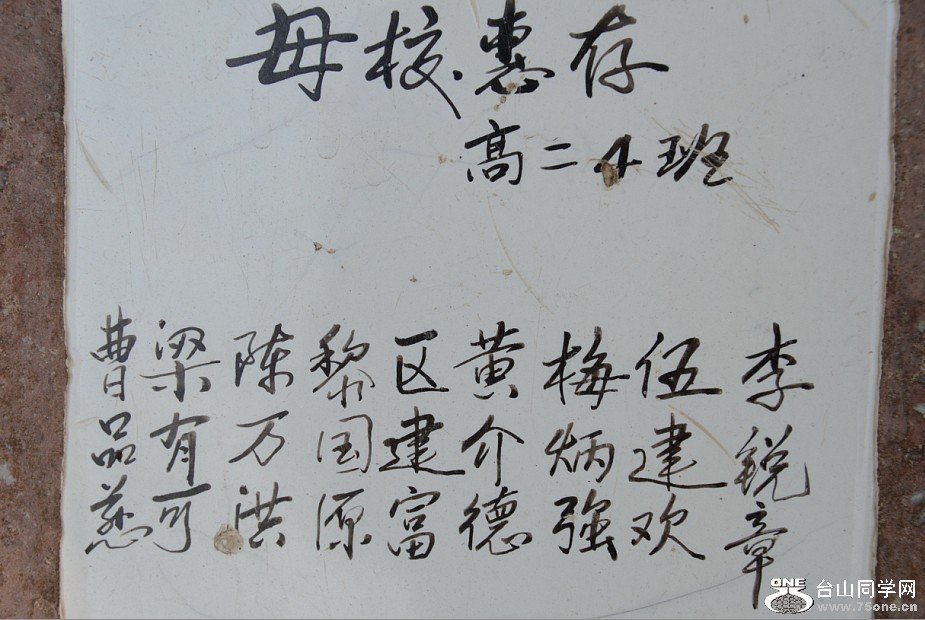 母校惠存
高二4班
李锐章
伍建欢
梅炳强
黄介德
区建富
黎国源
陈万洪
梁有可
曹品慈
ONE 台山同学网
www.75one.cn